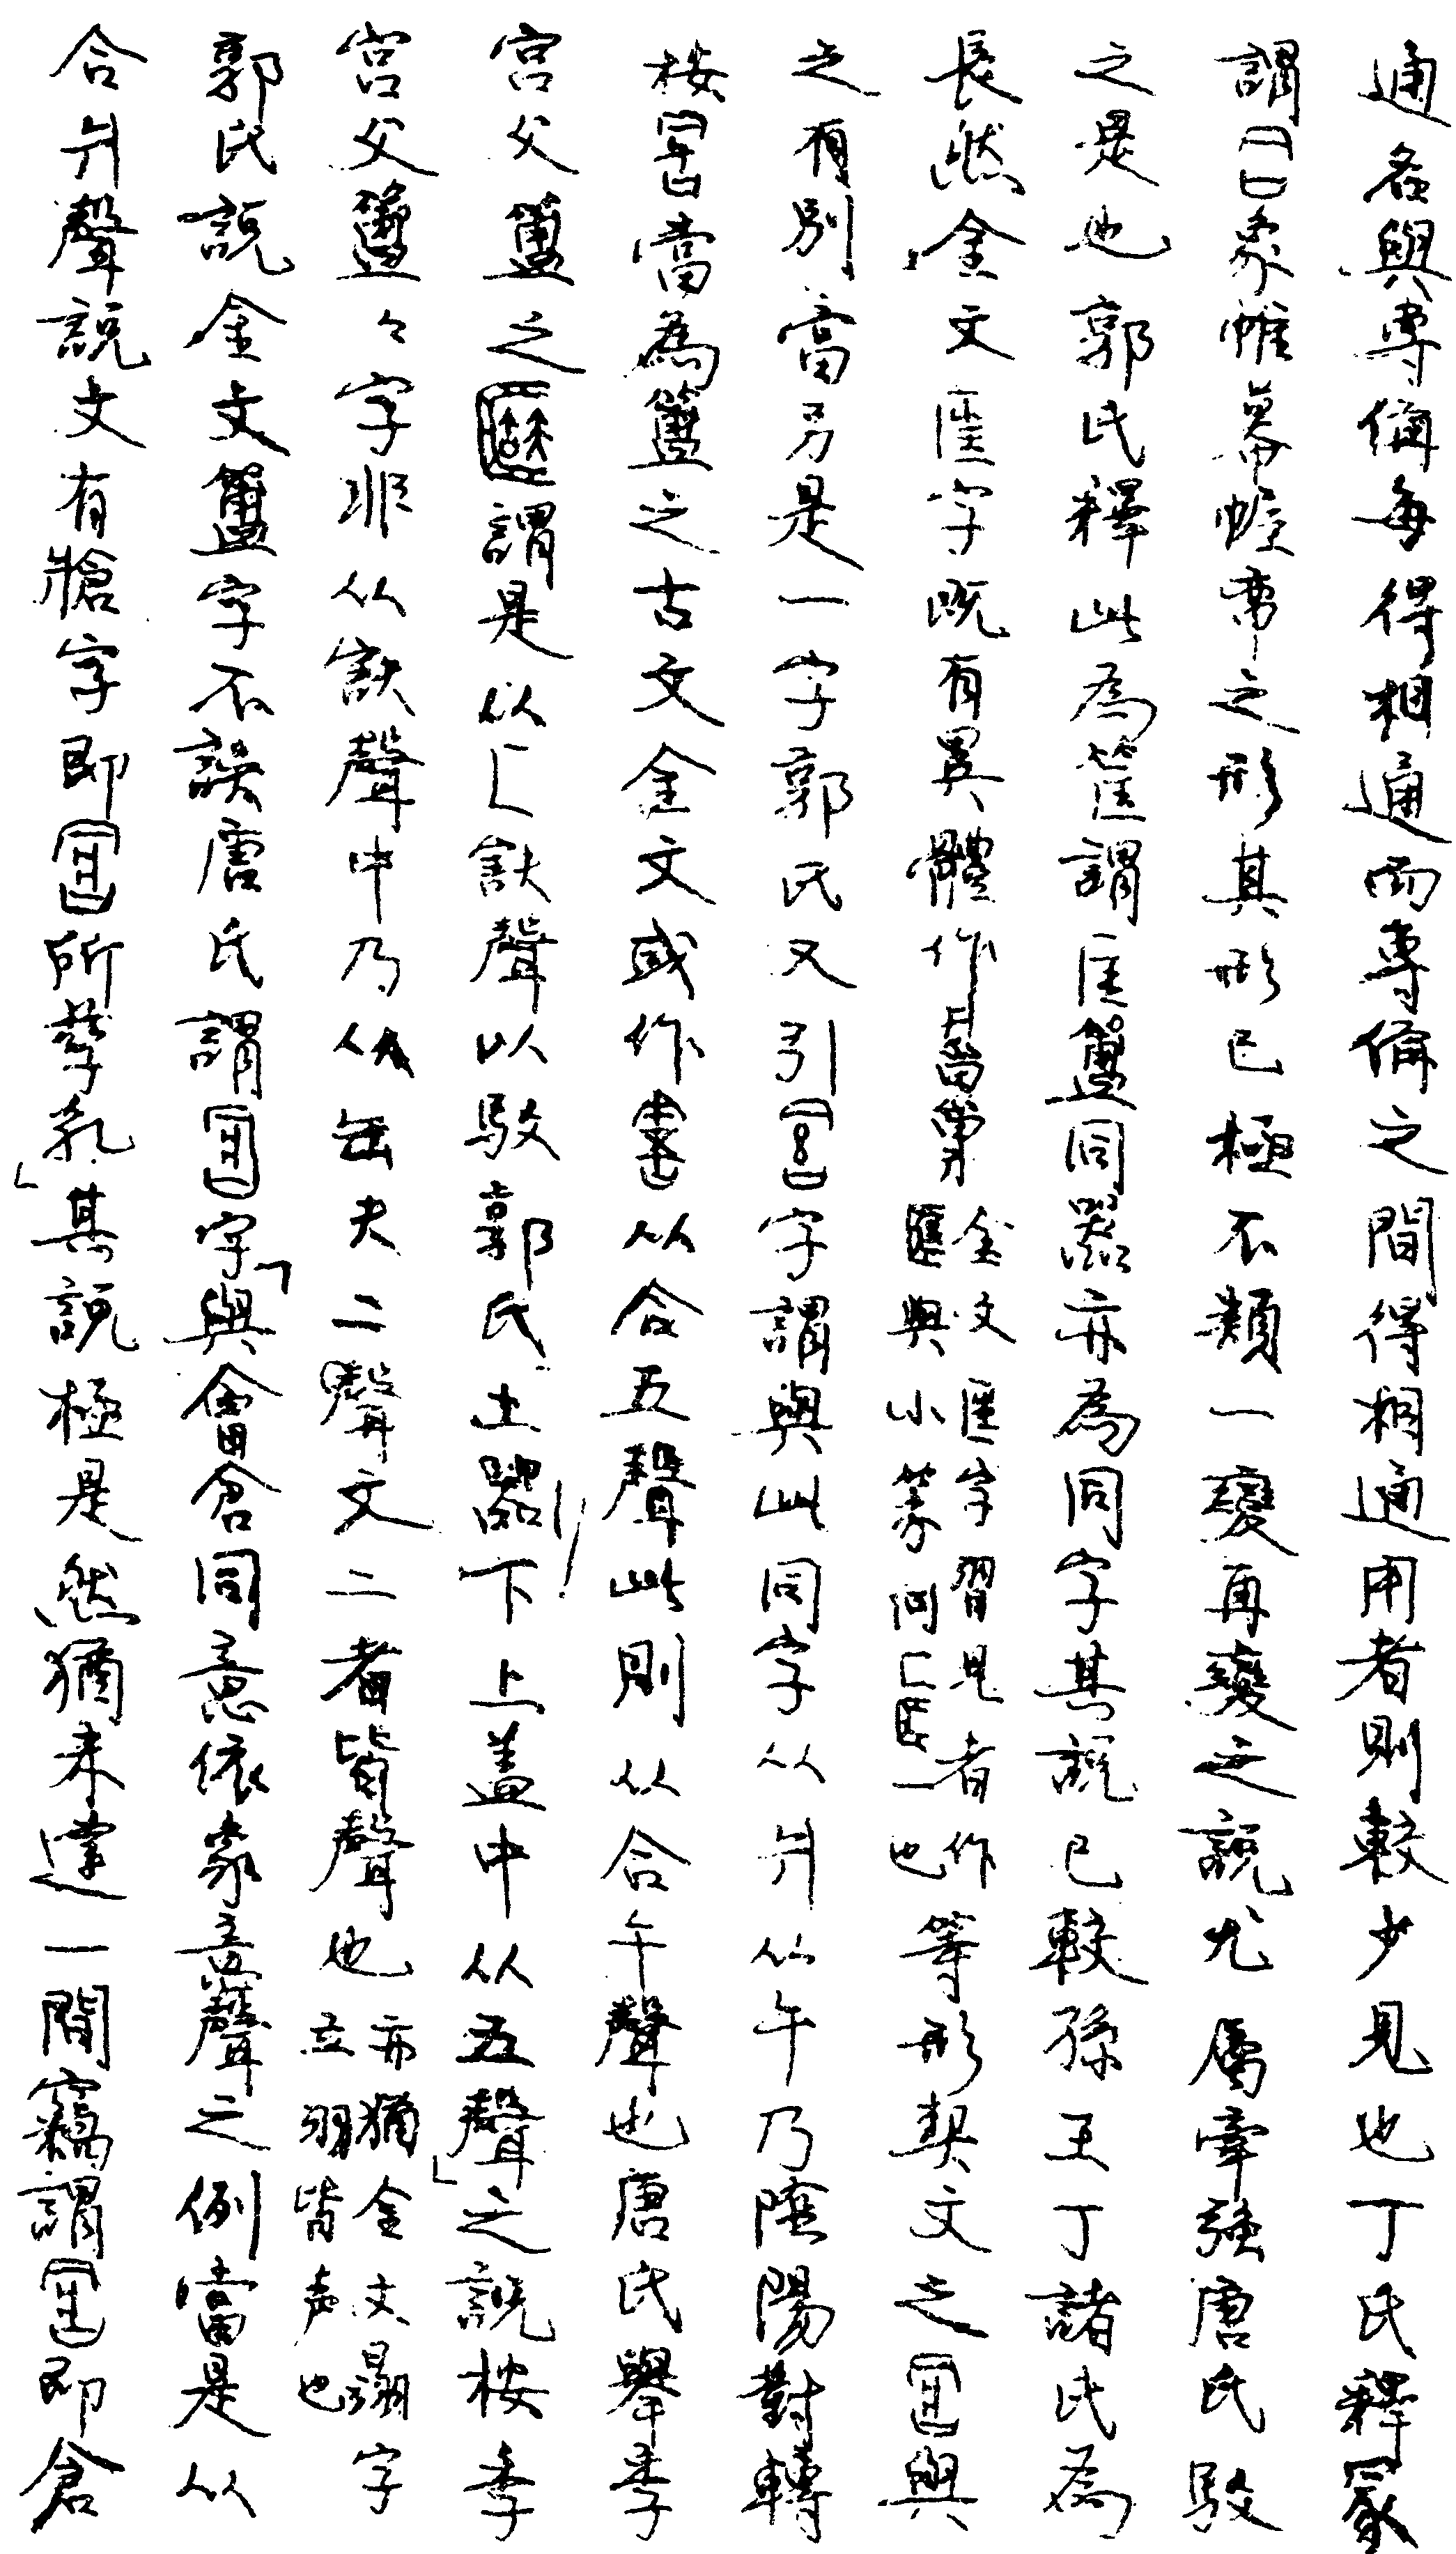 通名與專偁每得相通而專偁之間得相通用者則較少見也丁氏釋冡
謂象帷幕幄帟之形其形已極不類一變再變之說尤屬牽強唐氏駁
之是也郭氏釋此為筐謂匡簠同器亦為同字其說已較孫王丁諸氏為
長然金文匡字既有異體作金文匡字習見者作與小篆同匚一也等形契文之與
之有別當另是一字郭氏又引字謂與此同字从爿从午乃陰陽對轉
按當為簠之古文金文或作从合五聲此則从合午聲也唐氏舉季
宮父簠之謂是从匚㝬聲以駁郭氏土器下上蓋中从五聲之說按季
宮父簠々字非从㝬聲中乃从缶夫二聲文二者皆聲也亦猶金文字立羽皆声也
郭氏說金文簠字不誤唐氏謂字與會倉同意依象意聲之例當是从
合爿聲說文有牄字即所孳乳其說極是然猶未達一間竊謂即倉